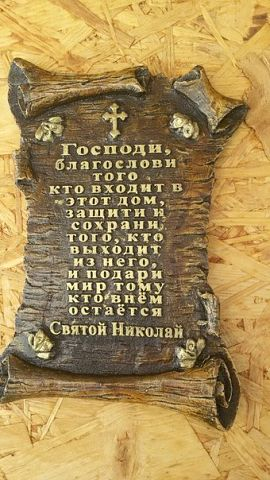 Господи,
благослови
того
кто входит в
этот дом,
защити и
сохрани
того, кто
выходит
из него,
и подари
мир тому
кто внём
остаётся
Святой Николай